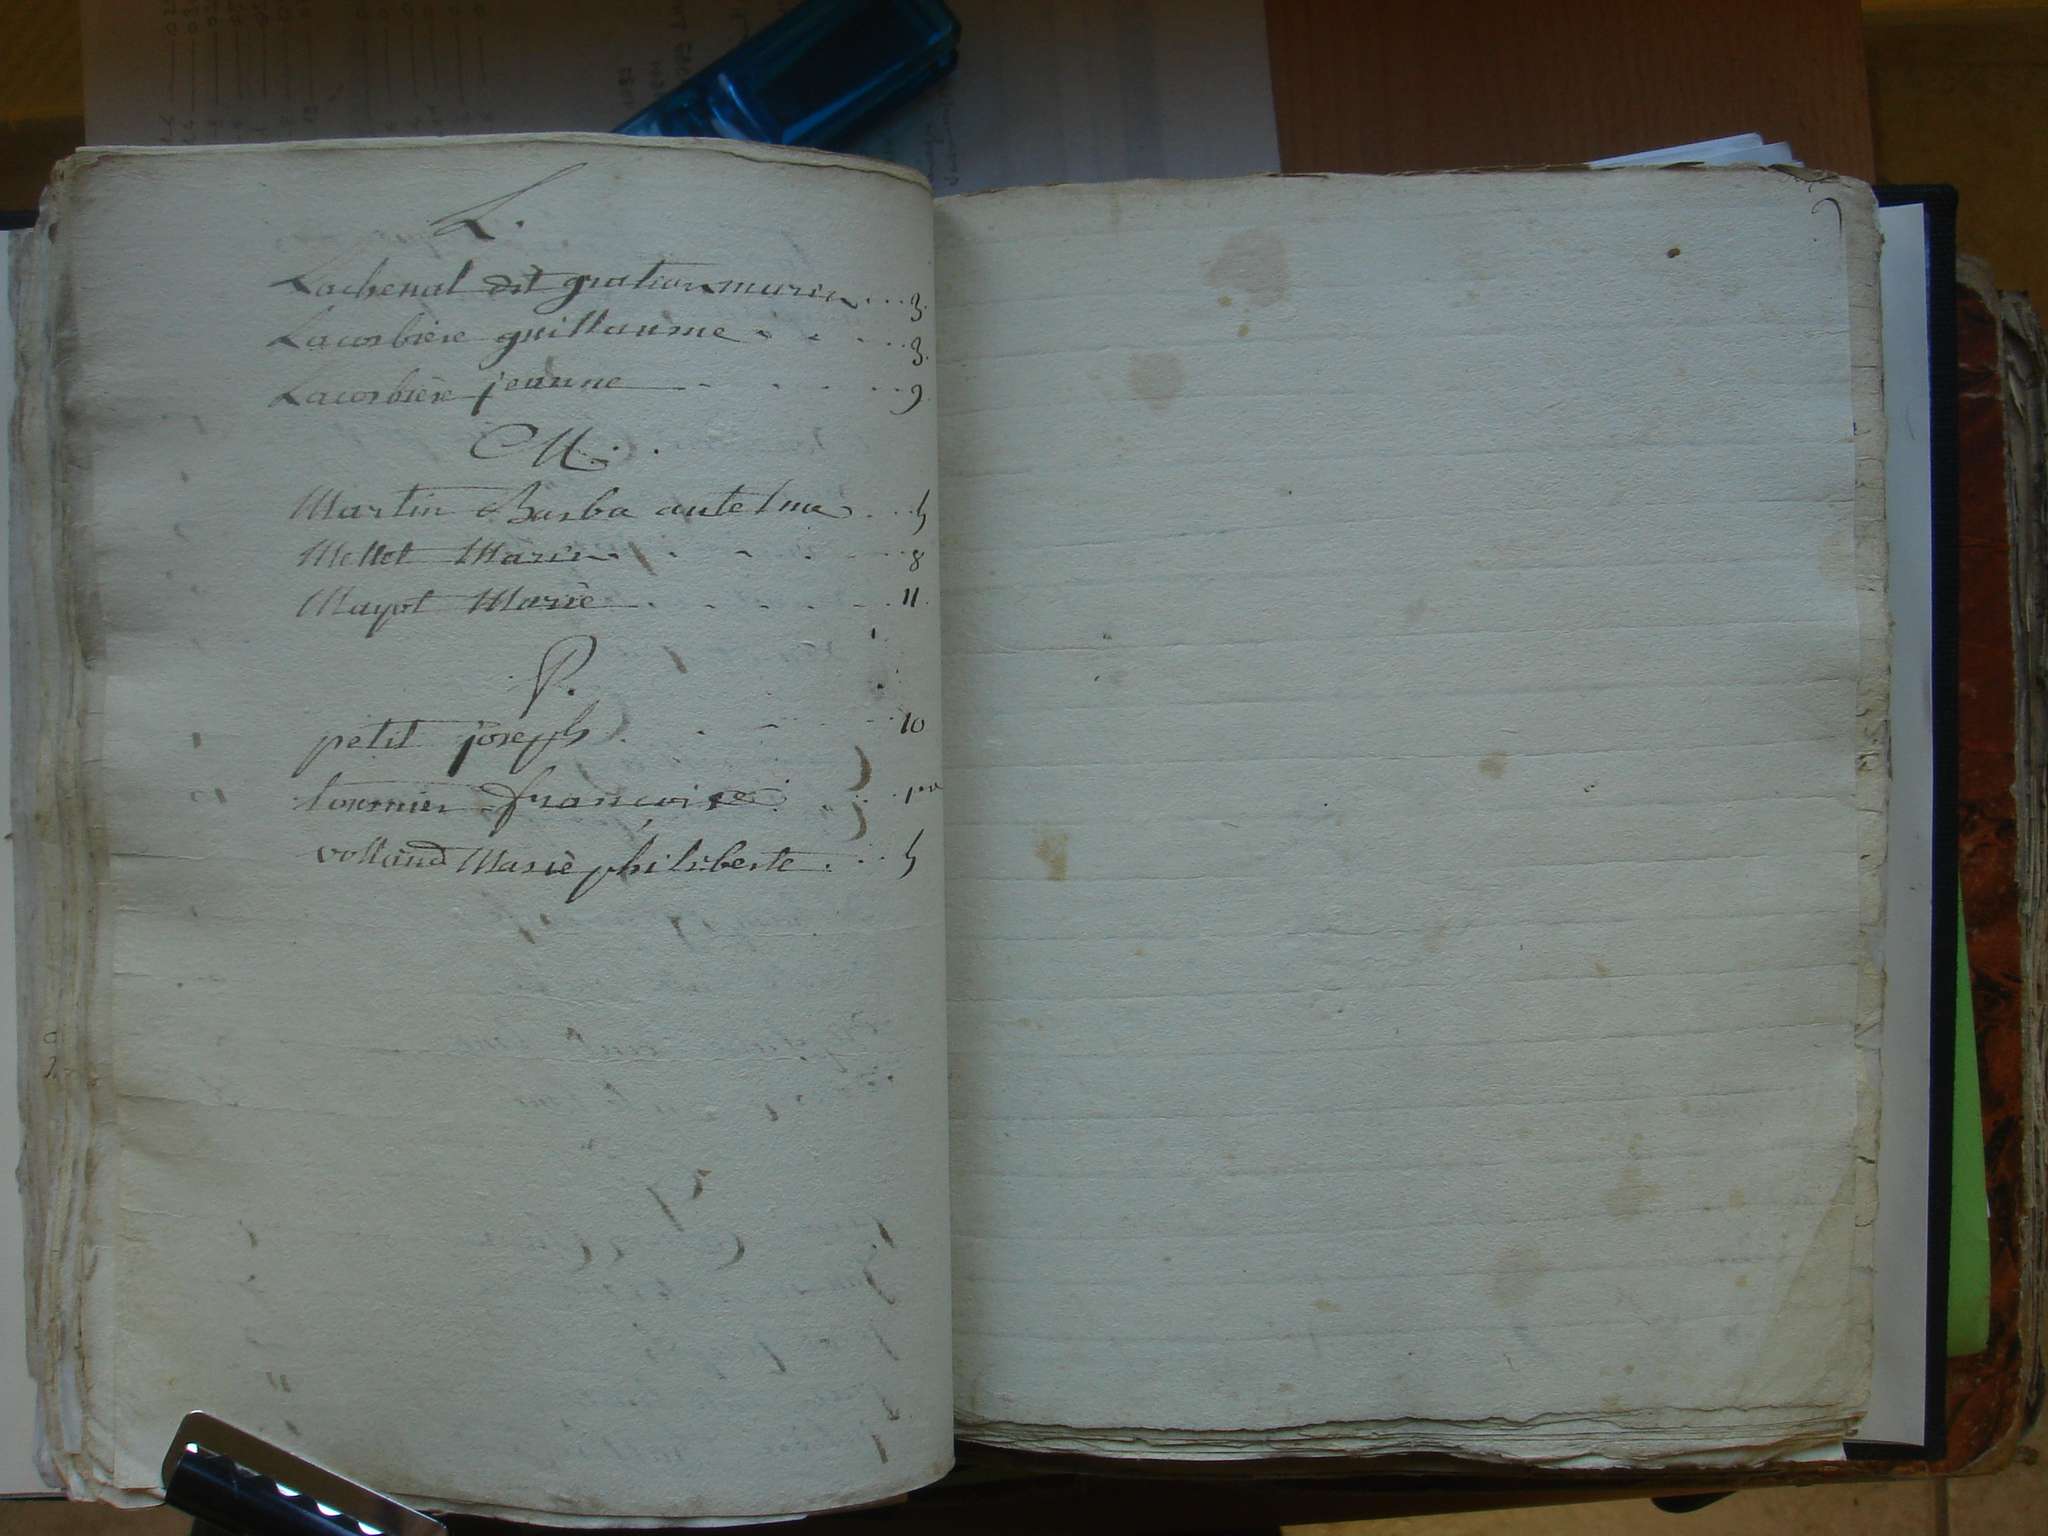 L.
Lachenal dit gratian marin . . . 3.
Lacorbière guillaume . . . . 3.
Lacorbière jeanne . . . . . 9.
M. .
Martin Barba antelme . . . 5
Mellet Marin . . . . . 8
Mayot Marie . . . . . 11.
P.
petit joseph . . . . . 10
tournier françoise . . . 1re
volland Marie philiberte . . . 5